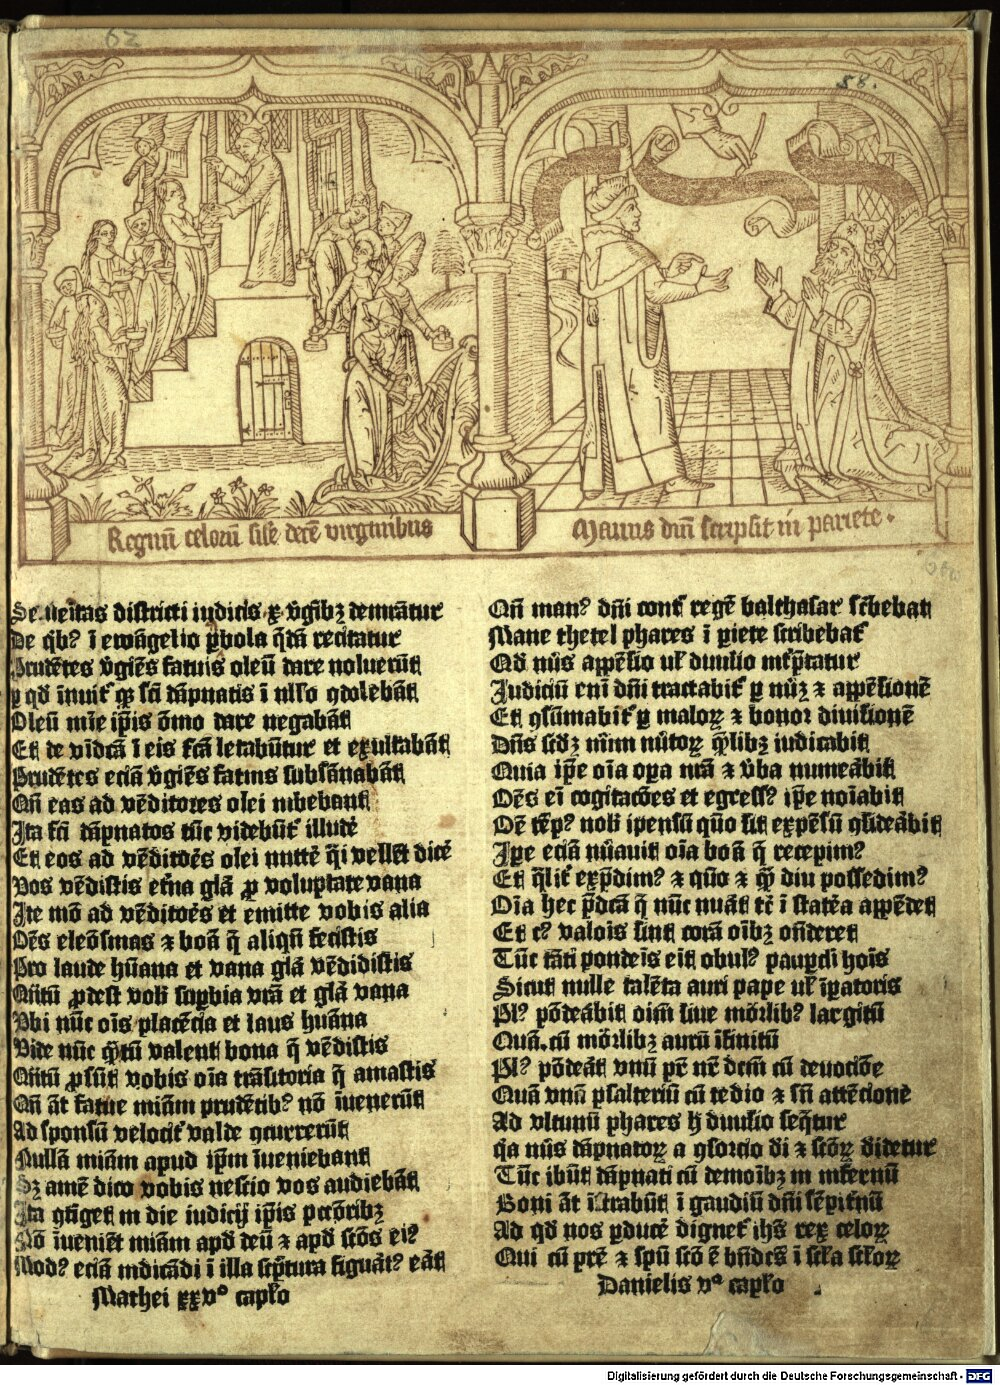 62
58.
Regnū celorū sile decē virginibus
Manus dn̄i scripsit in pariete.
Se ueitas districti iudicis ꝑ v̄gībꝫ demrātur
De qb? ī ewāgelio ꝑbola q̄dā recitatur
Prudētes v̄giēs fatuis oleū dare noluerūt
ꝑ qd īnuit̄ ꝙ scī dāpnatis ī nllo ꝯdolebāt
Oleū mīe ip̄is ōmo dare negabāt
Et de vīdcā ī eis fcā letabūtur et exultabāt
Prudētes eciā v̄giēs fatuas subsānabāt
Qn̄ eas ad vēditores olei iubebant
Ita scī dāpnatos tūc videbūt illudē
Et eos ad vēditoēs olei mittē q̄i vellēt dicē
Vos vēdistis et̄na glā ꝓ voluptate vana
Ite mō ad vēditoēs et emitte vobis alia
Oēs eleōsinas ⁊ boā q̄ aliqn̄ fecistis
Pro laude hūana et vana glā vēdidistis
Qn̄tū ꝓdest vob supbia vrā et glā vana
Vbi nūc oīs placēcia et laus huāna
Vide nūc q̄tū valent bona q̄ vēdistis
Qn̄tū ꝓsūt vobis oīa trāsitoria q̄ amastis
Qn̄ āt fatue miām prudētib? nō īuenerūt
Ad sponsū velocit̄ valde ꝯcurrerūt
Nullā miām apud ip̄m īueniebant
Sꝫ amē dico vobis nescio vos audiebāt
Ita ꝯtiget in die iudicij ip̄is pctōribꝫ
Nō īueniēt miām apd deū ⁊ apd scōs ei?
Mod? eciā iudicādi ī illa scptura figuāt? eāt
Mathei xxvº capło
Qn̄ man? dn̄i cont̄ regē balthasar sc̄bebat
Mane thetel phares ī piete scribebat̄
Qd nūs appēsio ul̄ diuisio int̄p̄tatur
Judiciū enī dn̄i tractabit̄ ꝑ nūꝫ ⁊ appēsionē
Et ꝯsūmabit̄ ꝑ maloꝝ ⁊ bonoꝝ diuisionē
Dn̄s scdꝫ nūm nūtoꝝ q̄libꝫ iudicabit
Quia ip̄e oīa oꝑa nrā ⁊ v̄ba numeābit
Oēs eī cogitacōes et egress? ip̄e noīabit
Oē tēp? nob ipensū quō sit expēsū ꝯsideābit
Ip̄e eciā nūauit oīa boā q̄ recepim?
Et q̄lit̄ expdim? ⁊ quō ⁊ q̄ diu possedim?
Oīa hec p̄dcā q̄ nūc nuāt tc̄ ī statēa appēdet
Et c? valois sint corā oībꝫ on̄deret
Tūc tāti pondeīs eit obul? pauꝑcli hoīs
Sicut mille talēta auri pape ul̄ īꝑatoris
Pl? pōdeābit oīm siue mōrlib? largitū
Quā cū mōrlibꝫ aurū īfinitū
Pl? pōdeāt vnū pr̄ nr̄ dcm̄ cū deuociōe
Quā vnū psalteriū cū tedio ⁊ sn̄ attēcionē
Ad vltimū phares h̄ diuisio seq̄tur
qa nūs dāpnatoꝝ a ꝯsorcio di ⁊ scōꝝ didetur
Tūc ibūt dāpnati cū demoībꝫ in infernū
Boni āt ītrabūt ī gaudiū dn̄i sēpit̄nū
Ad qd nos ꝑducē dignet̄ ih̄s rex celoꝝ
Qui cū pr̄e ⁊ spū scō ē bn̄dcs̄ ī scła scłoꝝ
Danielis vº capło
Digitalisierung gefördert durch die Deutsche Forschungsgemeinschaft - DFG